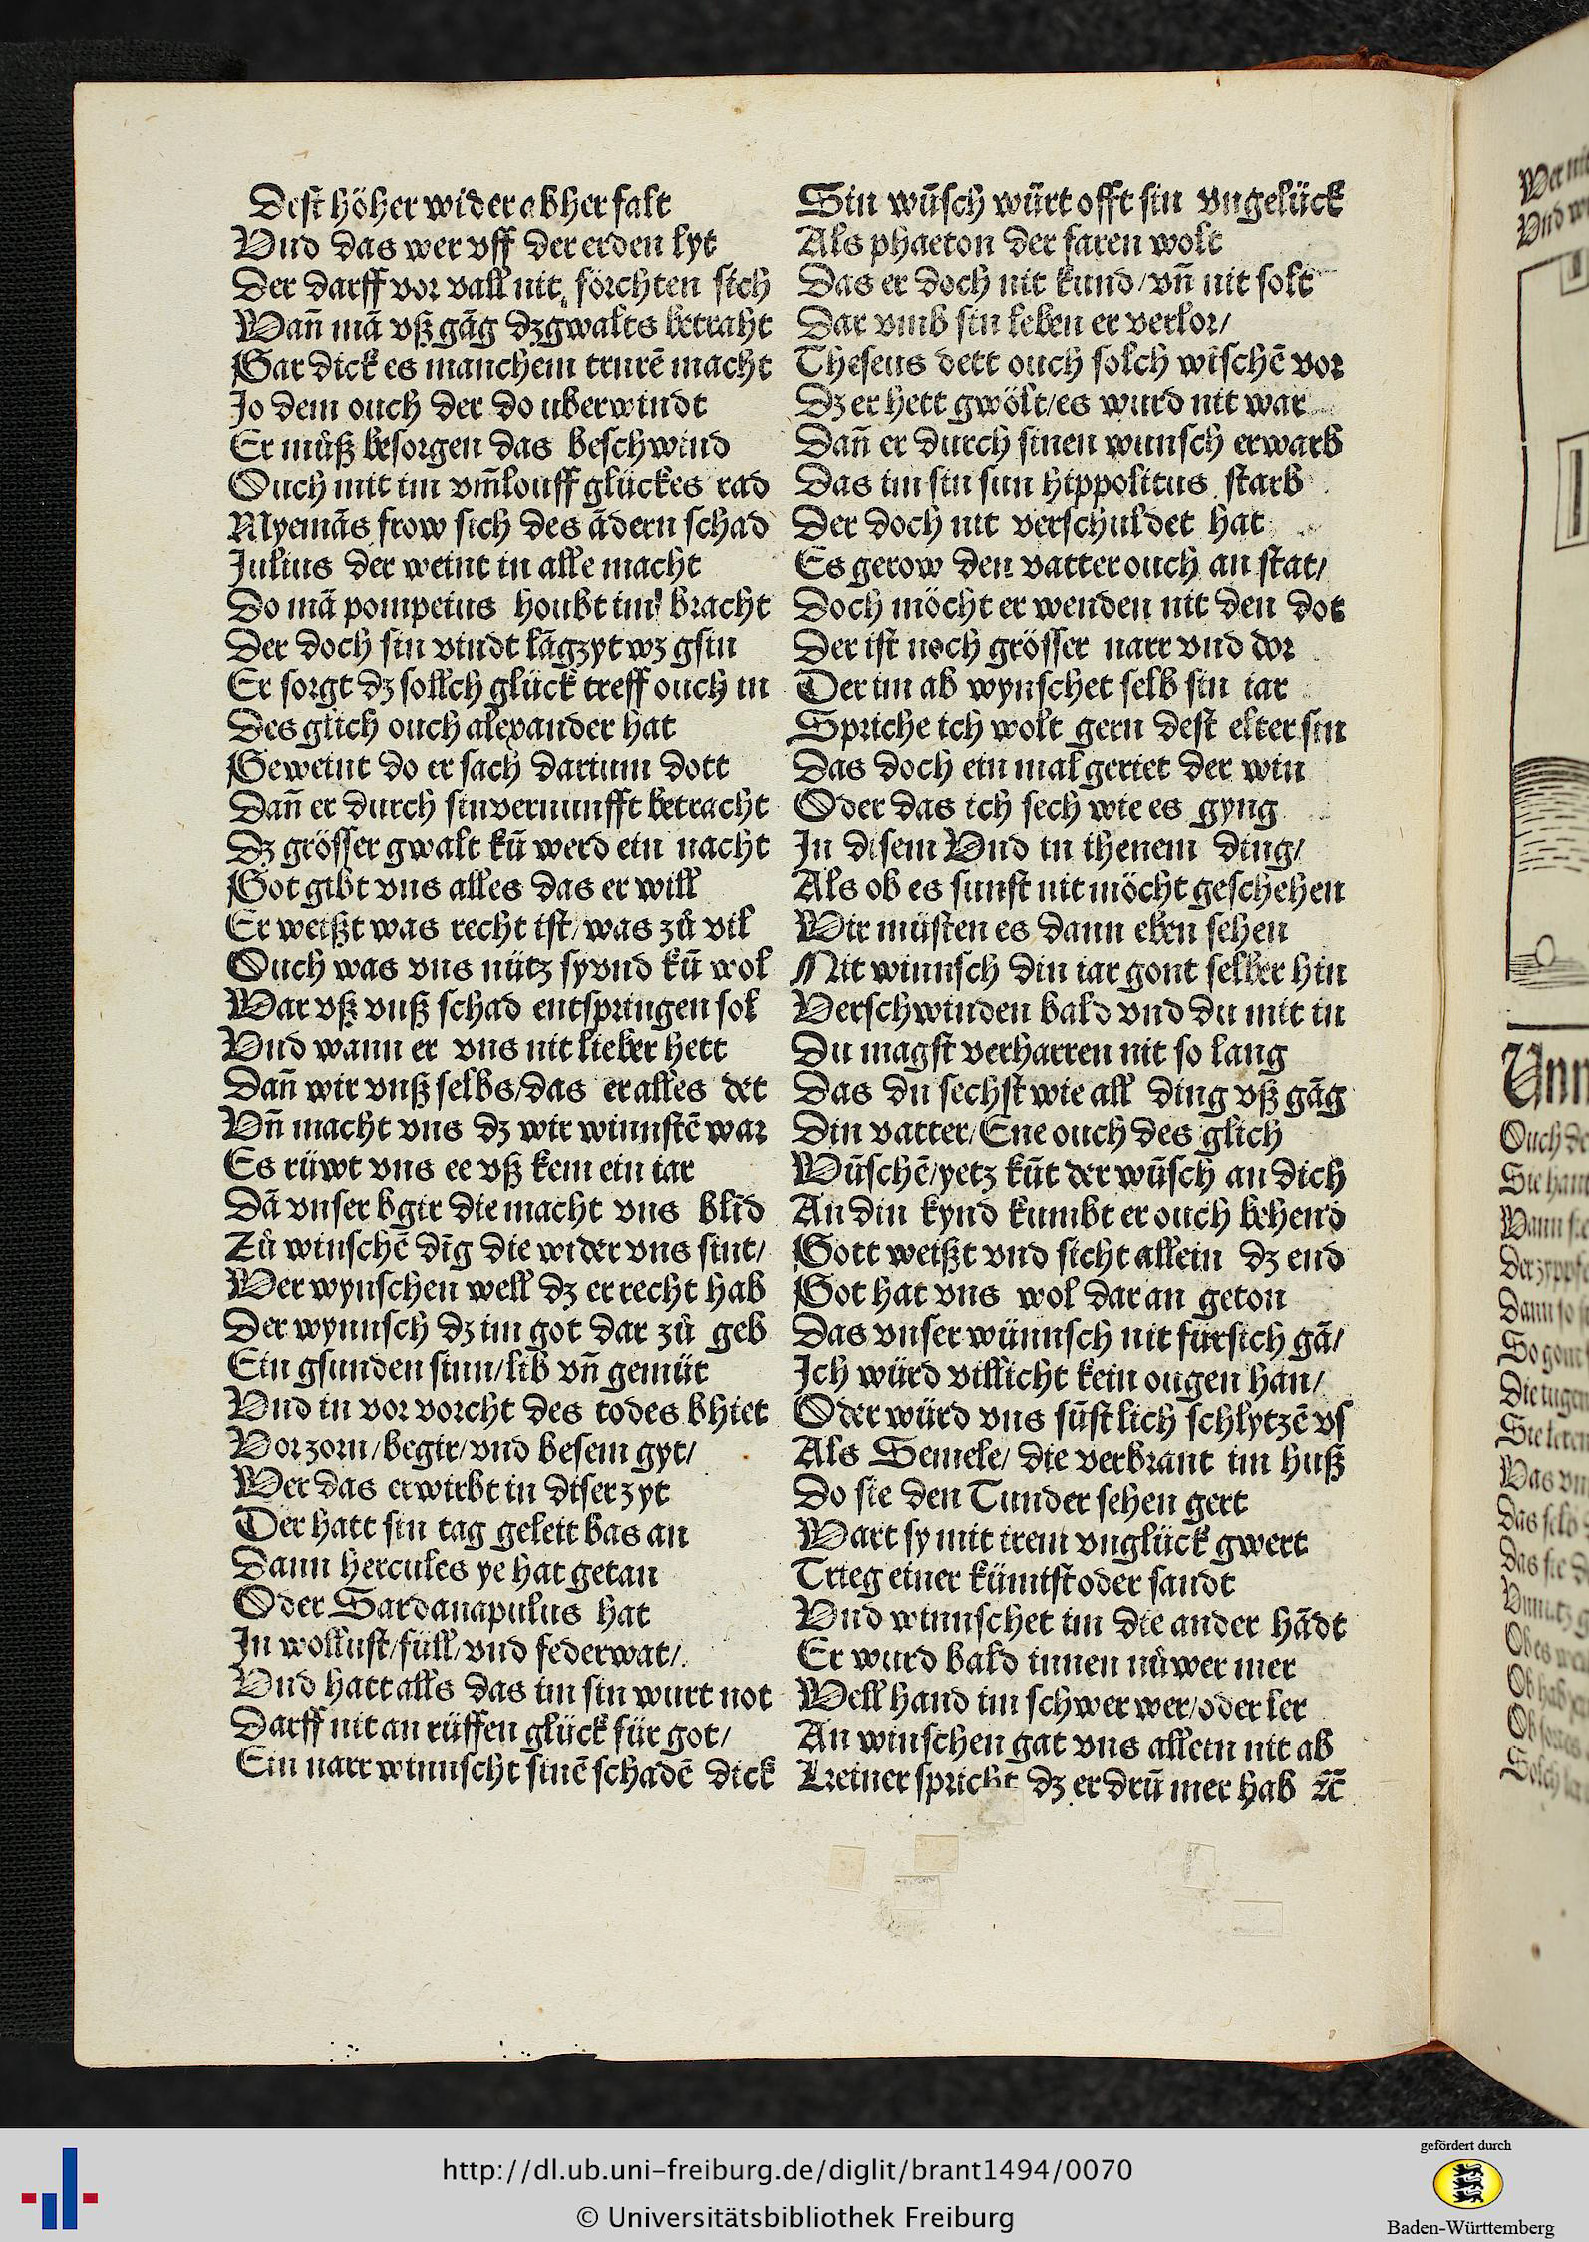 Dest höher wider abher falt
Vnd das wer vff der erden lyt
Der darff vor vall nit förchten sich
Wañ mā vß gāg dz gwalts betraht
Gar dick es manchem trurē macht
Jo dem ouch der do uberwindt
Er můß besorgen das beschwind
Ouch mit im vm̄louff glückes rad
Nyemās frow sich des ādern schad
Julius der weint in alle macht
Do mā pompeius houbt im bracht
Der doch sin vindt lāgzyt wz gsin
Er sorgt dz sollch glück treff ouch in
Des glich ouch alexander hat
Geweint do er sach darium dott
Dañ er durch sin vernunfft betracht
Dz grösser gwalt kū werd ein nacht
Got gibt vns alles das er will
Er weißt was recht ist/ was zů vil
Ouch was vns nütz sy vnd kū wol
War vß vnß schad entspringen sol
Vnd wann er vns nit lieber hett
Dañ wir vnß selbs/ das er alles det
Vñ macht vns dz wir winnstē war
Es rüwt vns ee vß kem ein iar
Dā vnser bgir die macht vns blīd
Zů winschē dīg die wider vns sint/
Wer wynschen well dz er recht hab
Der wynnsch dz im got dar zů geb
Ein gsunden sinn/ lib vñ gemüt
Vnd in vor vorcht des todes bhiet
Vor zorn/ begir/ vnd besem gyt/
Wer das erwirbt in diser zyt
Der hatt sin tag geleit bas an
Dann hercules ye hat getan
Oder Sardanapulus hat
In wollust/ füll/ vnd federwat/
Vnd hatt alls das im sin wurt not
Darff nit an rüffen glück für got/
Ein narr winnscht sinē schadē dick
Sin wūsch würt offt sin vngelück
Als phaeton der faren wolt
Das er doch nit kund/ vñ nit solt
Dar vmb sin leben er verlor/
Theseus dett ouch solch wischē vor
Dz er hett gwölt/ es wurd nit war
Dañ er durch sinen wunsch erwarb
Das im sin sun hippolitus starb
Der doch nit verschuldet hat
Es gerow den vatter ouch an stat/
Doch möcht er wenden nit den dot
Der ist noch grösser narr vnd dor
Der im ab wynschet selb sin iar
Spriche ich wolt gern dest elter sin
Das doch ein mal geriet der win
Oder das ich sech wie es gyng
In disem Vnd in thenem ding/
Als ob es sunst nit möcht geschehen
Wir müsten es dann eben sehen
Nit winnsch din iar gont selber hin
Verschwinden bald vnd du mit in
Du magst verharren nit so lang
Das du sechst wie all ding vß gāg
Din vatter/ Ene ouch des glich
Wūschē/ yetz kūt der wūsch an dich
An din kynd kumbt er ouch behend
Gott weißt vnd sicht allein dz end
Got hat vns wol dar an geton
Das vnser wünnsch nit fürsich gā/
Ich würd villicht kein ougen han/
Oder würd vns sūstlich schlytzē vs
Als Semele/ die verbrant im huß
Do sie den Tunder sehen gert
Wart sy mit irem vnglück gwert
Trieg einer künītst oder sandt
Vnd winnschet im die ander hādt
Er wurd bald innen nůwer mer
Well hand im schwer wer/ oder ler
An winschen gat vns allein nit ab
Kreiner spricht dz er drū mer hab ꝛc̄
Wer
Vnd
Vnn
Ouch
Sie
Wann
Der
Dann so
So gont
Die tugen
Sie leren
Was
Das
Das sie
Vnnutz
Ob es
Ob hab
Ob
Solch
http://dl.ub.uni-freiburg.de/diglit/brant1494/0070
© Universitätsbibliothek Freiburg
gefördert durch
Baden-Württemberg